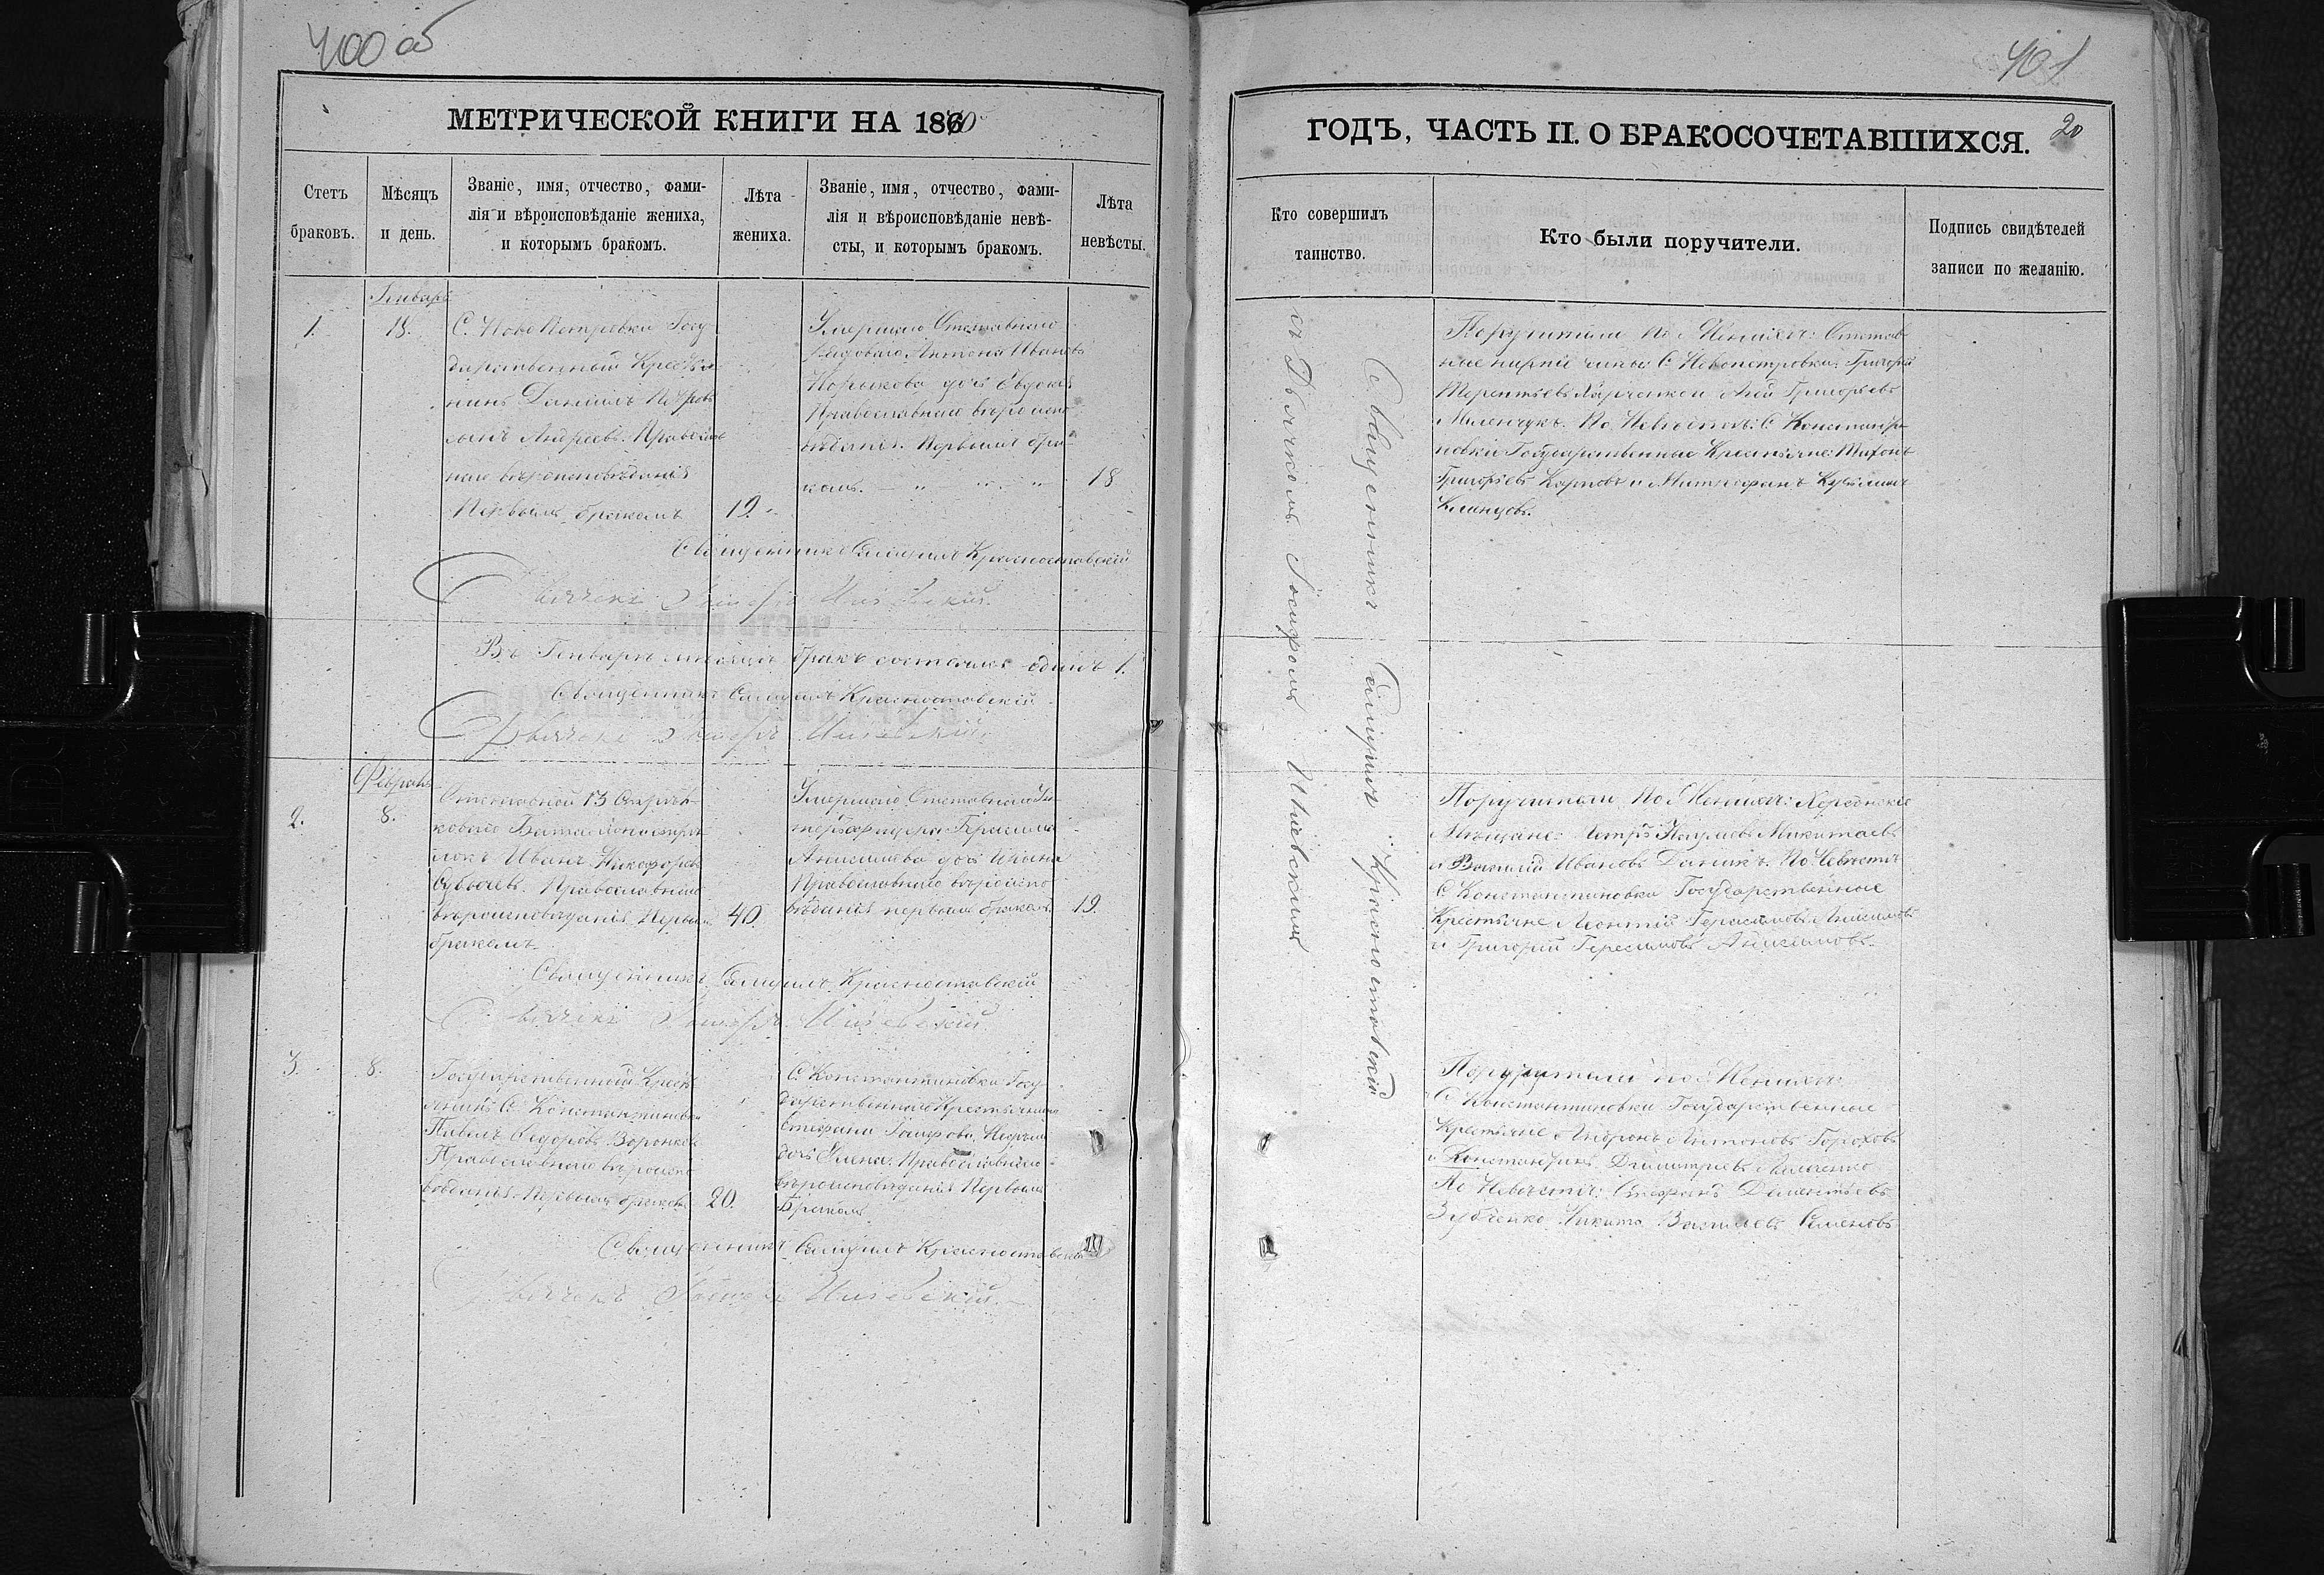 400 об
МЕТРИЧЕСКОЙ КНИГИ НА 1870
Счетъ браковъ.
Мѣсяцъ и день.
Званіе, имя, отчество, фами-
лія и вѣроисповѣданіе жениха,
и которымъ бракомъ.
Лѣта
жениха.
Званіе, имя, отчество, фами-
лія и вѣроисповѣданіе невѣ-
сты, и которымъ бракомъ.
Лѣта
невѣсты.
Генварь
1.
18.
С. Ново Петровки Госу
дарственный Крестья
нинъ Даніилъ Петровъ
сынъ Андреевъ. Православ
наго вѣроисповѣданія
Первымъ бракомъ
19.
Умершаго Отставнаго
Рядоваго Антонія Иванова
дочь Евдокія
Православнаго вѣроиспо
вѣданія. Первымъ бра
комъ.
18
Священникъ Самуилъ Красноставскій
Дьячекъ Іосифъ
Въ Генварѣ мѣсяцѣ бракъ состоялся одинъ 1.
Священникъ Самуилъ Красноставскій
Дьячекъ Іосифъ
Февраль
2.
8.
Отставной 13 Стрѣл
коваго Баталіона стрѣ
локъ Иванъ Никифоровъ
Православнаго
вѣроисповѣданія Первымъ
бракомъ.
40.
Умершаго Отставнаго Ун
теръ офицера Герасима
Анисимова дочь
Православнаго вѣроиспо
вѣданія первымъ бракомъ.
19.
Священникъ Самуилъ Красноставскій
Дьячекъ Іосифъ
3.
8.
Государственный Крест
янинъ С. Константиновки
Павелъ Федоровъ Воронковъ
Православнаго вѣроиспо
вѣданія. Первымъ бракомъ
20.
С. Константиновки Госу
дарственнаго Крестьянина
Стефана
дочь Елена. Православнаго
вѣроисповѣданія Первымъ
Бракомъ
Священникъ Самуилъ Красноставскій
Дьячекъ Іосифъ
401
ГОДЪ, ЧАСТЬ II. О БРАКОСОЧЕТАВШИХСЯ.
20
Кто совершилъ
таинство.
Кто были поручители.
Подпись свидѣтелей
записи по желанію.
Священникъ Самуилъ Красноставскій
съ Дьячкомъ Іосифомъ
Поручители по Женихѣ: Отстав
ные нижніе чины С Новопетровки: Григорій
Терентьевъ Харченко и Григорьевъ
По Невѣстѣ: С Константи
новки Государственные Крестьяне: Тихонъ
Григорьевъ Карповъ и Митрофанъ
Поручители По Женихѣ: Херсонскіе
Мѣщане: Петръ Наумовъ
и Василій Ивановъ По Невѣстѣ
С Константиновки Государственные
Крестьяне Леонтій Герасимовъ Анисимовъ
и Григорій Герасимовъ Анисимовъ.
Поручители по Женихѣ:
С Константиновки Государственные
Крестьяне Андронъ Антоновъ Гороховъ
и Константинъ Димитріевъ
По Невѣстѣ: Стефанъ Дементьевъ
Зубченко Никита Васильевъ Семеновъ